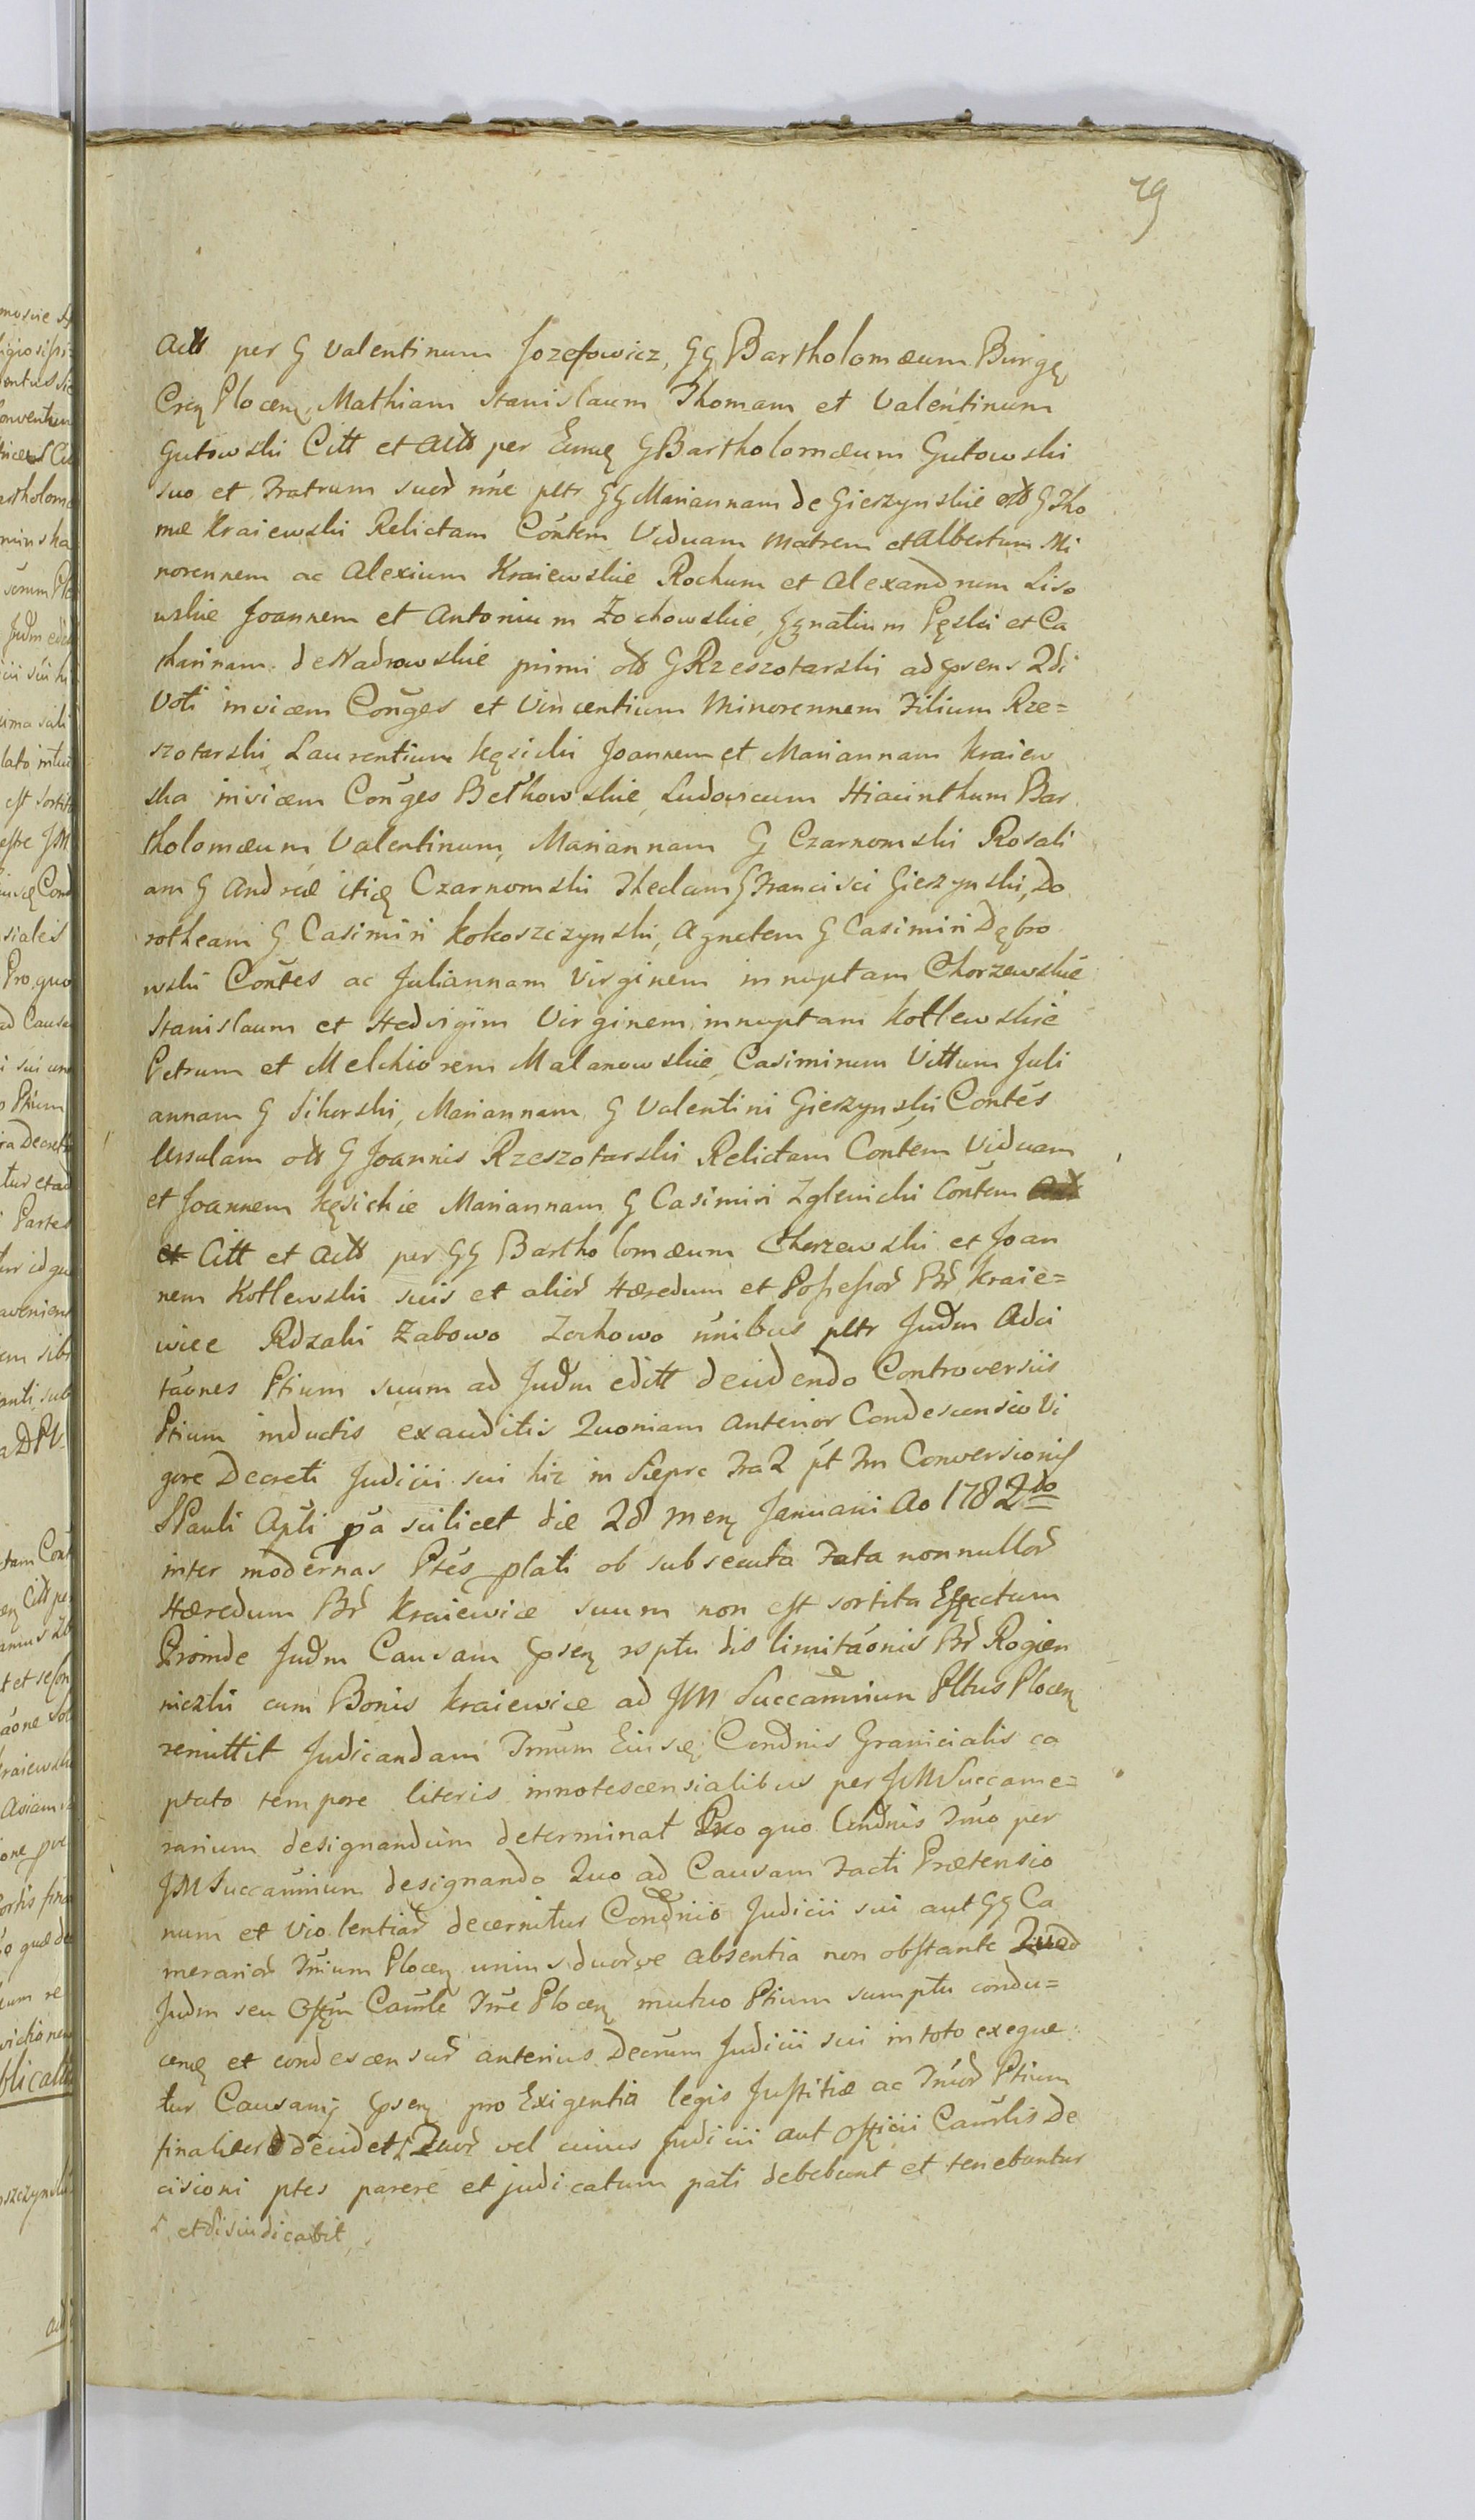 79
Actt per G Valentinum Jozefowicz, GG Bartholomæum Burgę
Crem Plocen, Mathiam Stanislaum Thomam et Valentinum
Gutowski Citt et Actt per Eumę G Bartholomæum Gutowski
suo et Fratrum suor nne pltr GG Mariannam de Gierzynskie ott G Tho
mæ Kraiewski Relictam Contem Viduam Matrem et Albertum Mi
norennem ac Alexium Kraiewskie Rochum et Alexandrum Liso
wskie Joannem et Antonium Zochowskie, Ignatium Pęski et Ca
tharinam de Nadrowskie primi ott G Rzeszotarski ad psens 2di
Voti invicem Conges et Vincentium Minorennem Filium Rze=
szotarski, Laurentium Kęsicki Joannem et Mariannam Kraiew
ska invicem Conges Bethowskie, Ludovicum Hiacinthum Bar
tholomæum, Valentinum, Mariannam G Czarnomski Rosali
am G Andreæ itię Czarnomski Theclam G Francisci Gierzynski, Do
rotheam G Casimiri Kokoszczynski, Agnetem G Casimiri Dąbro
wski Contes ac Juliannam Virginem innuptam Chorzewskie
Stanislaum et Hedvigim Virginem innuptam Kotlewskie
Petrum et Melchiorem Malanowskie, Casimirum Vittum Juli
annam G Sikorski, Mariannam G Valentini Gierzynski Contes
Ursulam ott G Joannis Rzeszotarski Relictam Contem Viduam
et Joannem Kęsickie Mariannam G Casimiri Zglenicki Contem
et Citt et Actt per GG Bartholomæum Chorzewski et Joan
nem Kotlewski suis et alior Hæredum et Possessor Br Kraie=
wice Rdzaki Zabowo Zochowo nnibus pltr Judm Adci
taones Ptium suum ad Judm editt decidendo Controversiis
Ptium inductis exauditis Quoniam Anterior Condescensio Vi
gore Decreti Judicii sui hic in Sieprc Fra 2 pt Fm Conversionis
S Pauli Apli pa scilicet die 28 Mens Januarii Ao 1782do
inter modernas Ptes plati ob subsecuta Fata nonnullor
Hæredum Br Kraiewice suum non est sortita Effectum
Proinde Judm Causam psen rsptu dislimitaonis Br Rogien
niczki cum Bonis Kraiewice ad JM Succamrium Pltus Plocen
remittit Judicandam Trnum Eiusę Condnis Granicialis ca
ptato tempore literis innotescensialibus per JM Succame=
rarium designandum determinat Pro quo Condnis Trno per
JM Succamrium designando Quo ad Causam Facti Prætensio
num et Violentiar decernitur Condnio Judicii sui aut GG Ca
merarior Trium Plocen unius duorve absentia non obstante Quod
Judm seu Offm Camrle Trre Plocen mutuo Ptium sumptu condu=
cenę et condescensur anterius Decrum Judicii sui in toto exeque
tur Causamą psen pro Exigentia legis Justitiæ ac Jurior Ptium
finaliter decidet Quor vel cuius Judicii aut Officii Camrlis De
cisioni ptes parere et judicatum pati debebunt et tenebuntur
et disiudicabit